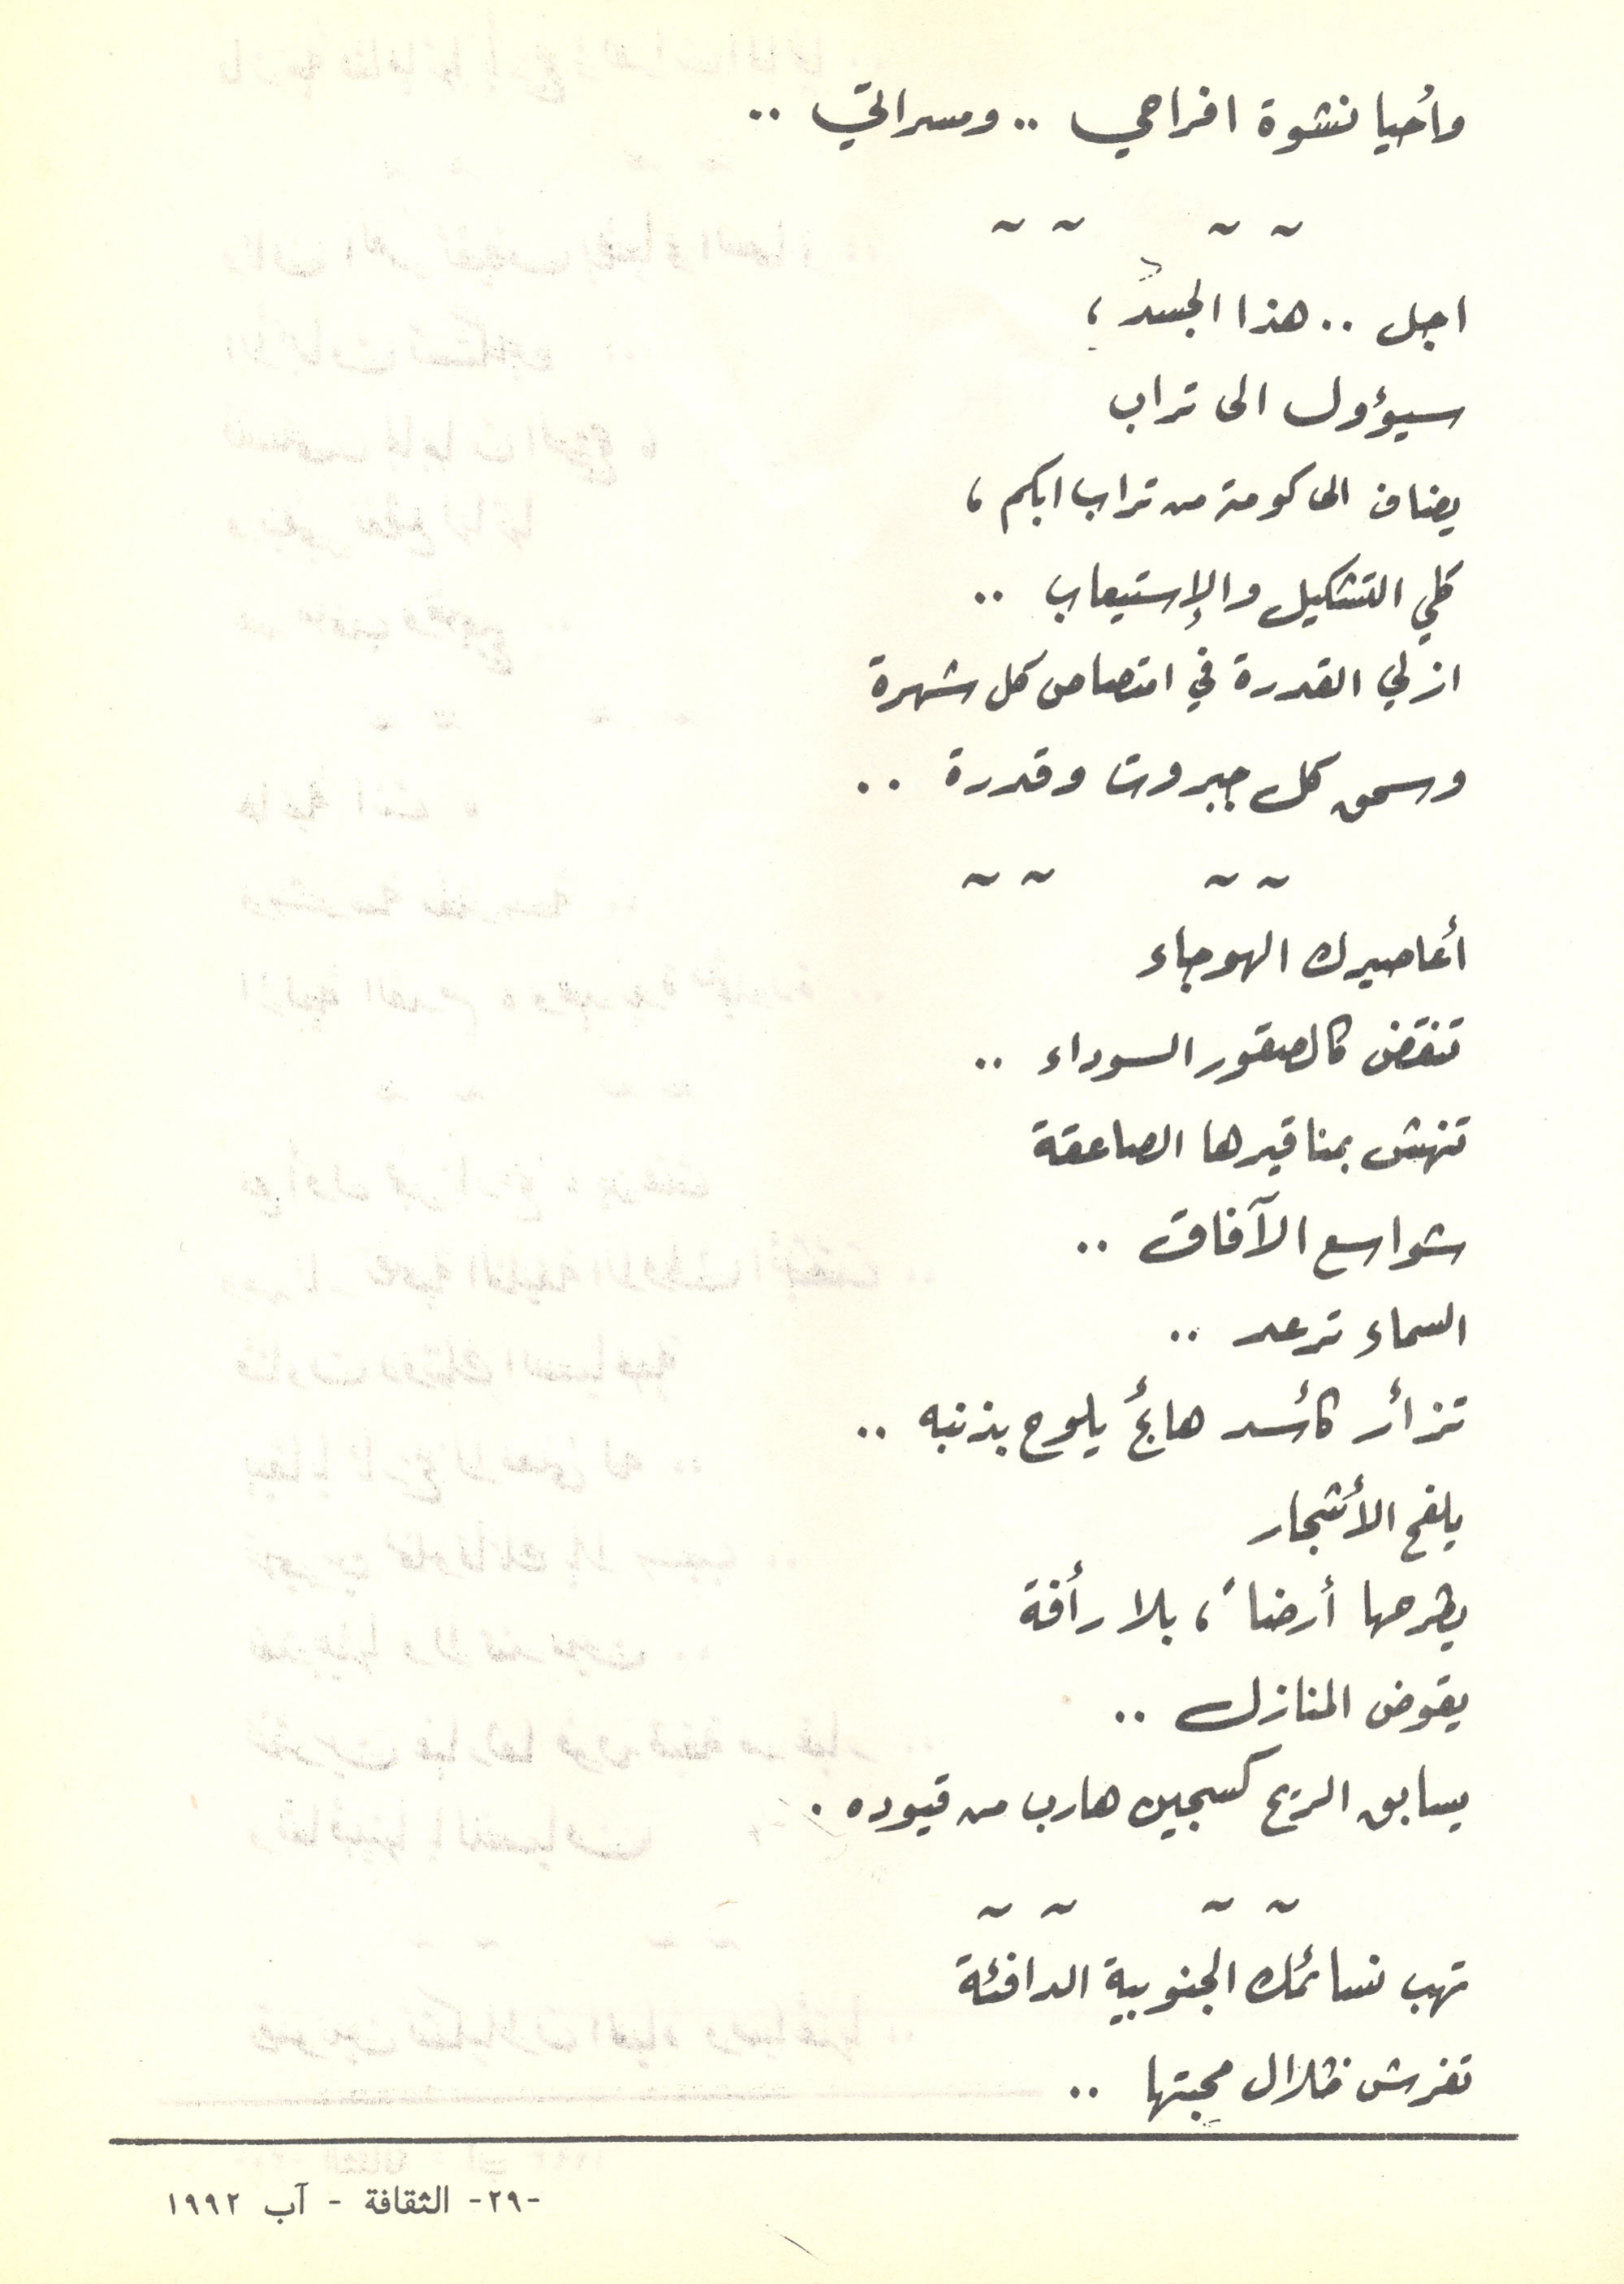 وأحيا نشوة افراحي .. ومسراتي ..
~ ~ ~ ~
اجل .. هذا الجسدُ ،
سيؤول الى تراب
يضاف الى كومة من تراب ابكم ،
كلي التشكيل والإستيعاب ..
ازلي القدرة في امتصاص كل شهرة
وسحق كل جبروت وقدرة ..
~ ~ ~ ~
أعاصيرك الهوجاء
تنقض كالصقور السوداء ..
تنهش بمناقيرها الصاعقة
شواسع الآفاق ..
السماء ترعد ..
تزأر كأسد هائج يلوح بذنبه ..
يلفح الأشجار
يطرحها أرضاً ، بلا رأفة
يقوض المنازل ..
يسابق الريح كسجين هارب من قيوده .
~ ~ ~ ~
تهب نسائمك الجنوبية الدافئة
تفرش ظلال محبتها ..
-٢٩- الثقافة - آب ١٩٩٢